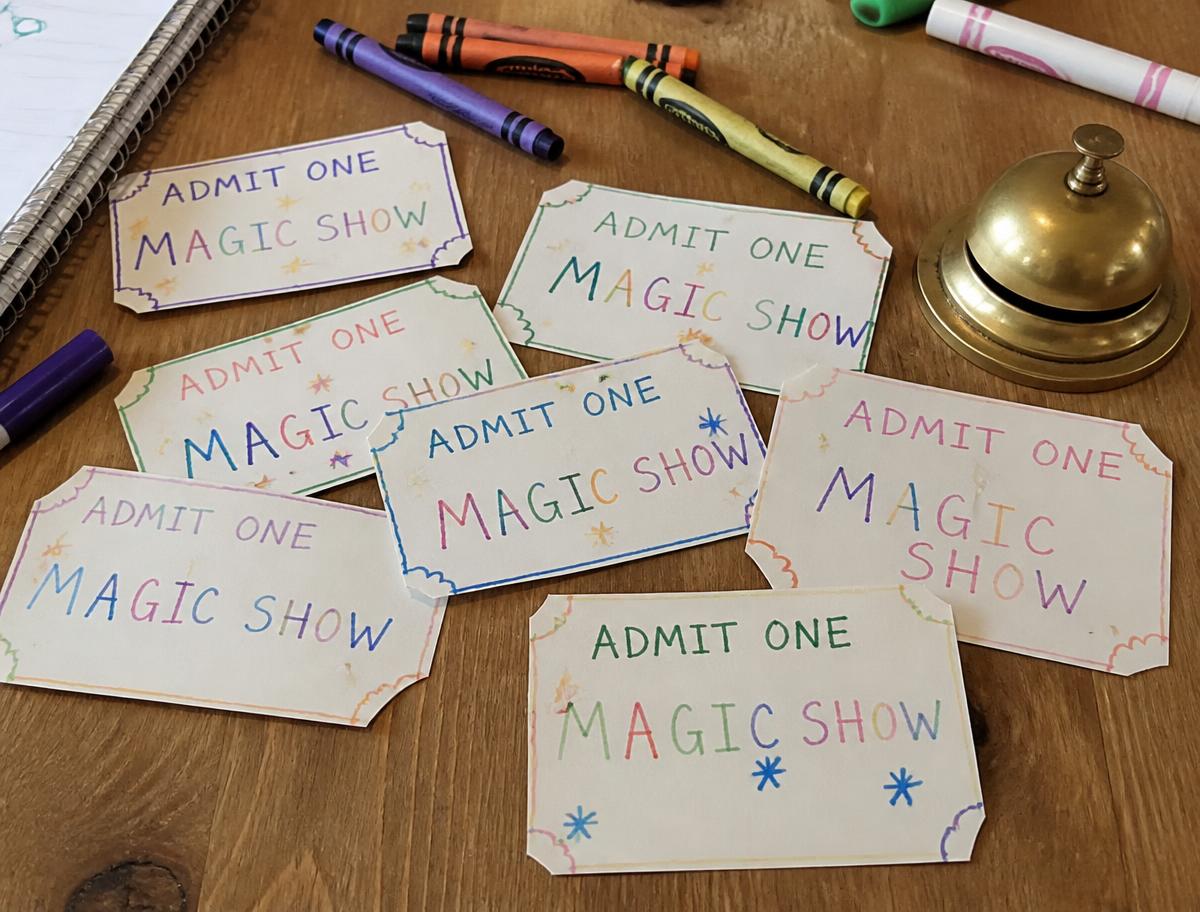 ADMIT ONE
MAGIC SHOW
ADMIT ONE
MAGIC SHOW
ADMIT ONE
MAGIC SHOW
ADMIT ONE
MAGIC SHOW
ADMIT ONE
MAGIC
SHOW
ADMIT ONE
MAGIC SHOW
ADMIT ONE
MAGIC SHOW